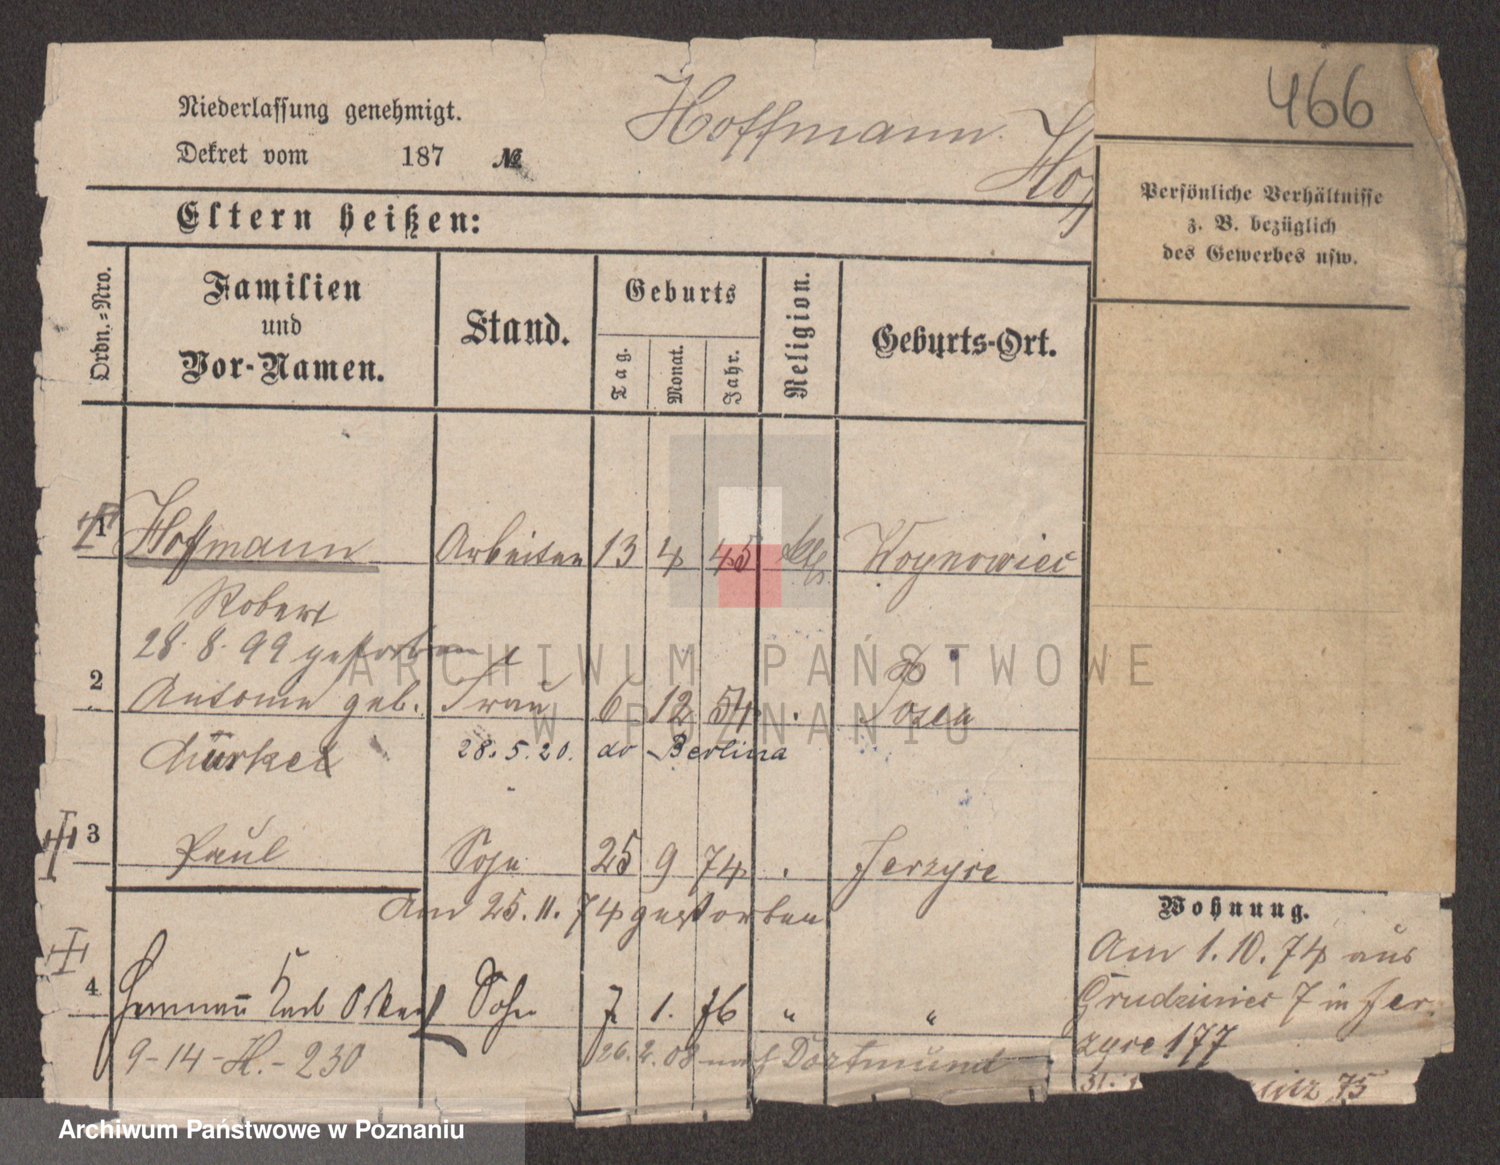 466
Niederlassung genehmigt.
Hoffmann
Dekret vom 187 №
Eltern heißen:
Persönliche Verhältnisse
z. B. bezüglich
des Gewerbes usw.
Ordn.=Nro.
Familien
und
Vor-Namen.
Stand.
Geburts
Tag.
Monat.
Jahr.
Religion.
Geburts-Ort.
1 Hoffmann Arbeiter 13 4 45 Woynowiec
Robert
28. 8. 99 gestorben
2 Antonie geb. Frau 6 12 54 . Posen
28. 5. 20. do Berlina
3 Paul Sohn 25 9 74 . Jerzyce
Am 25. 11. 74 gestorben
4 Hermann Karl Oskar Sohn 7 1. 76 " "
9-14-H.-230 26. 2. 08 nach Dortmund
Wohnung.
Am 1. 10. 74 aus
Grudziniec 7 in Jer-
zyce 177
31. 75
ARCHIWUM PAŃSTWOWE
W POZNANIU
Archiwum Państwowe w Poznaniu